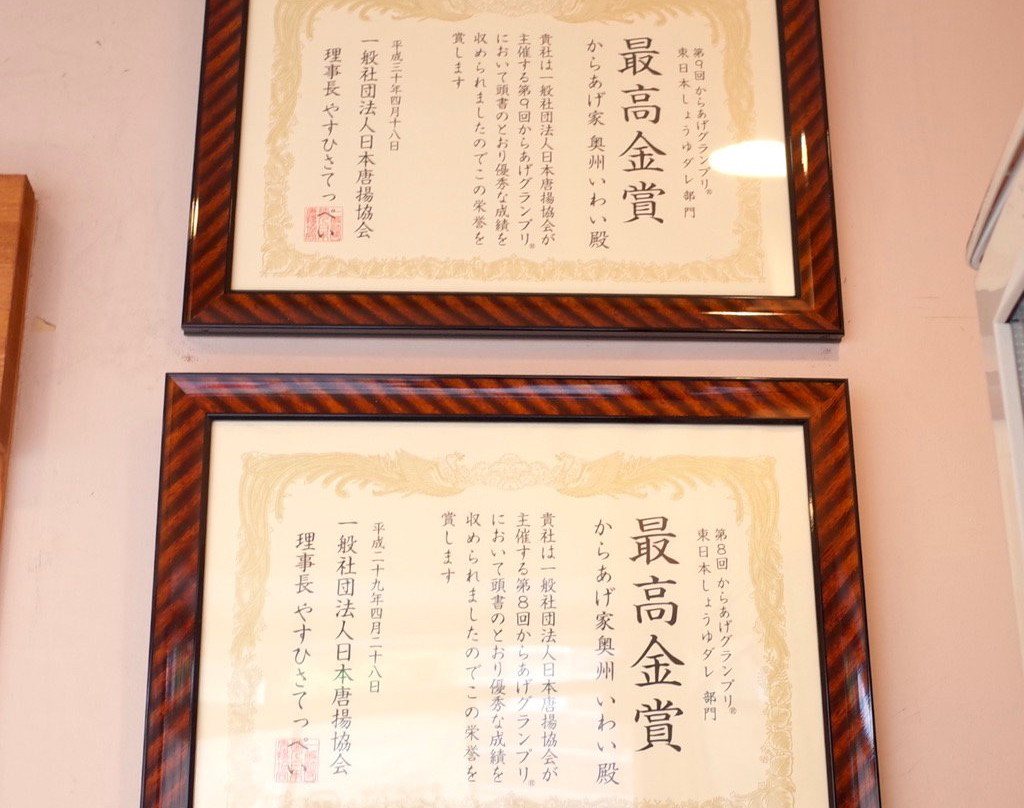 第9回 からあげグランプリ®
東日本しょうゆダレ部門
最高金賞
からあげ家 奥州いわい 殿
貴社は一般社団法人日本唐揚協会が
主催する第9回からあげグランプリ®
において頭書のとおり優秀な成績を
収められましたのでこの栄誉を
賞します
平成三十年四月十八日
一般社団法人日本唐揚協会
理事長 やすひさてっぺい
第8回 からあげグランプリ®
東日本しょうゆダレ 部門
最高金賞
からあげ家奥州 いわい 殿
貴社は一般社団法人日本唐揚協会が
主催する第8回からあげグランプリ®
において頭書のとおり優秀な成績を
収められましたのでこの栄誉を
賞します
平成二十九年四月二十八日
一般社団法人日本唐揚協会
理事長 やすひさてっぺい